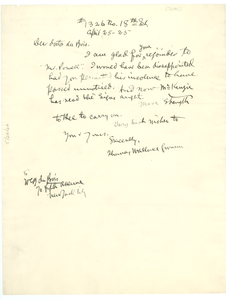 #1326 No. 18th St
April 25-25
Dear Doto du Bois.
I am glad for your rejoinder to
Mr. Powell. I would have been disappointed
had you permit his insolence to have
passed unnoticed. And now McKenzie
has read the signs aright. More strength
to thee to carry on. Very best wishes to
You & Yours.
Sincerely,
Wallace
du Bois
70 Fifth Avenue
New York City